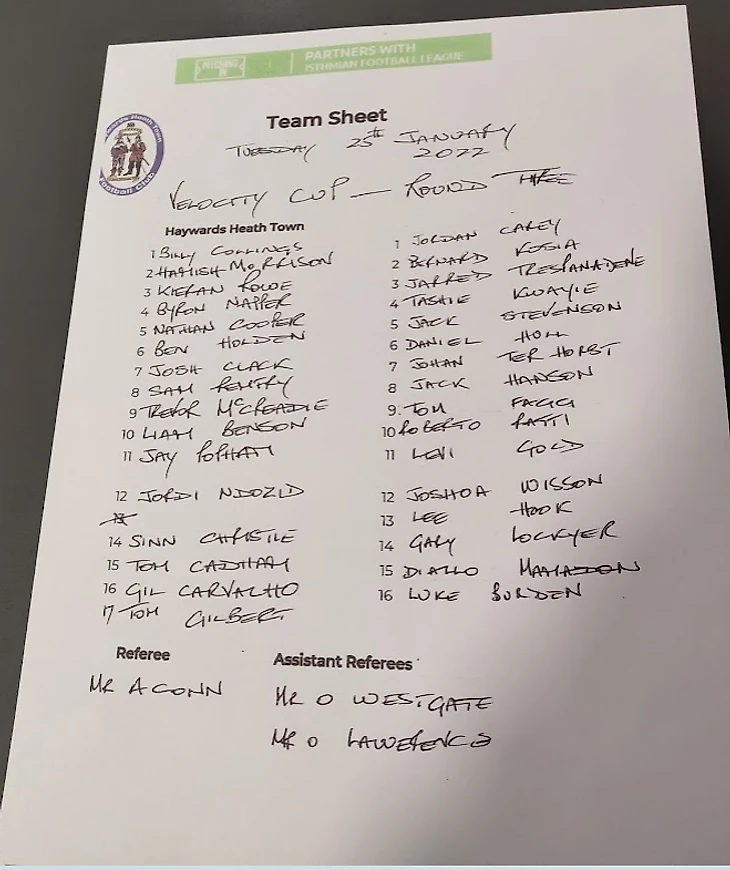 PITCHING IN
PARTNERS WITH
ISTHMIAN FOOTBALL LEAGUE
Haywards Heath Town
Football Club
Team Sheet
TUESDAY 25th JANUARY
2022
VELOCITY CUP — ROUND THREE
Haywards Heath Town
1 BILLY COLLINGS
2 HAMISH MORRISON
3 KIERAN ROWE
4 BYRON NAPPER
5 NATHAN COOPER
6 BEN HOLDEN
7 JOSH CLACK
8 SAM REMFRY
9 TREVOR MCCREADIE
10 LIAM BENSON
11 JAY POPHAM
12 JORDI NDOZID
13
14 SINN CHRISTIE
15 TOM CADHAM
16 GIL CARVALHO
17 TOM GILBERT
1 JORDAN CAREY
2 BERNARD KOSIA
3 JARRED TRESPANADENE
4 TASHIE KWAYIE
5 JACK STEVENSON
6 DANIEL HOLL
7 JOHAN TER HORST
8 JACK HANSON
9. TOM FAGG
10 ROBERTO RATTI
11 LEVI GOLD
12 JOSHOA WISSON
13 LEE HOOK
14 GARY LOCKYER
15 DIALLO MAMADON
16 LUKE BURDEN
Referee
MR A CONN
Assistant Referees
MR O WESTGATE
MR O LAWERENCE